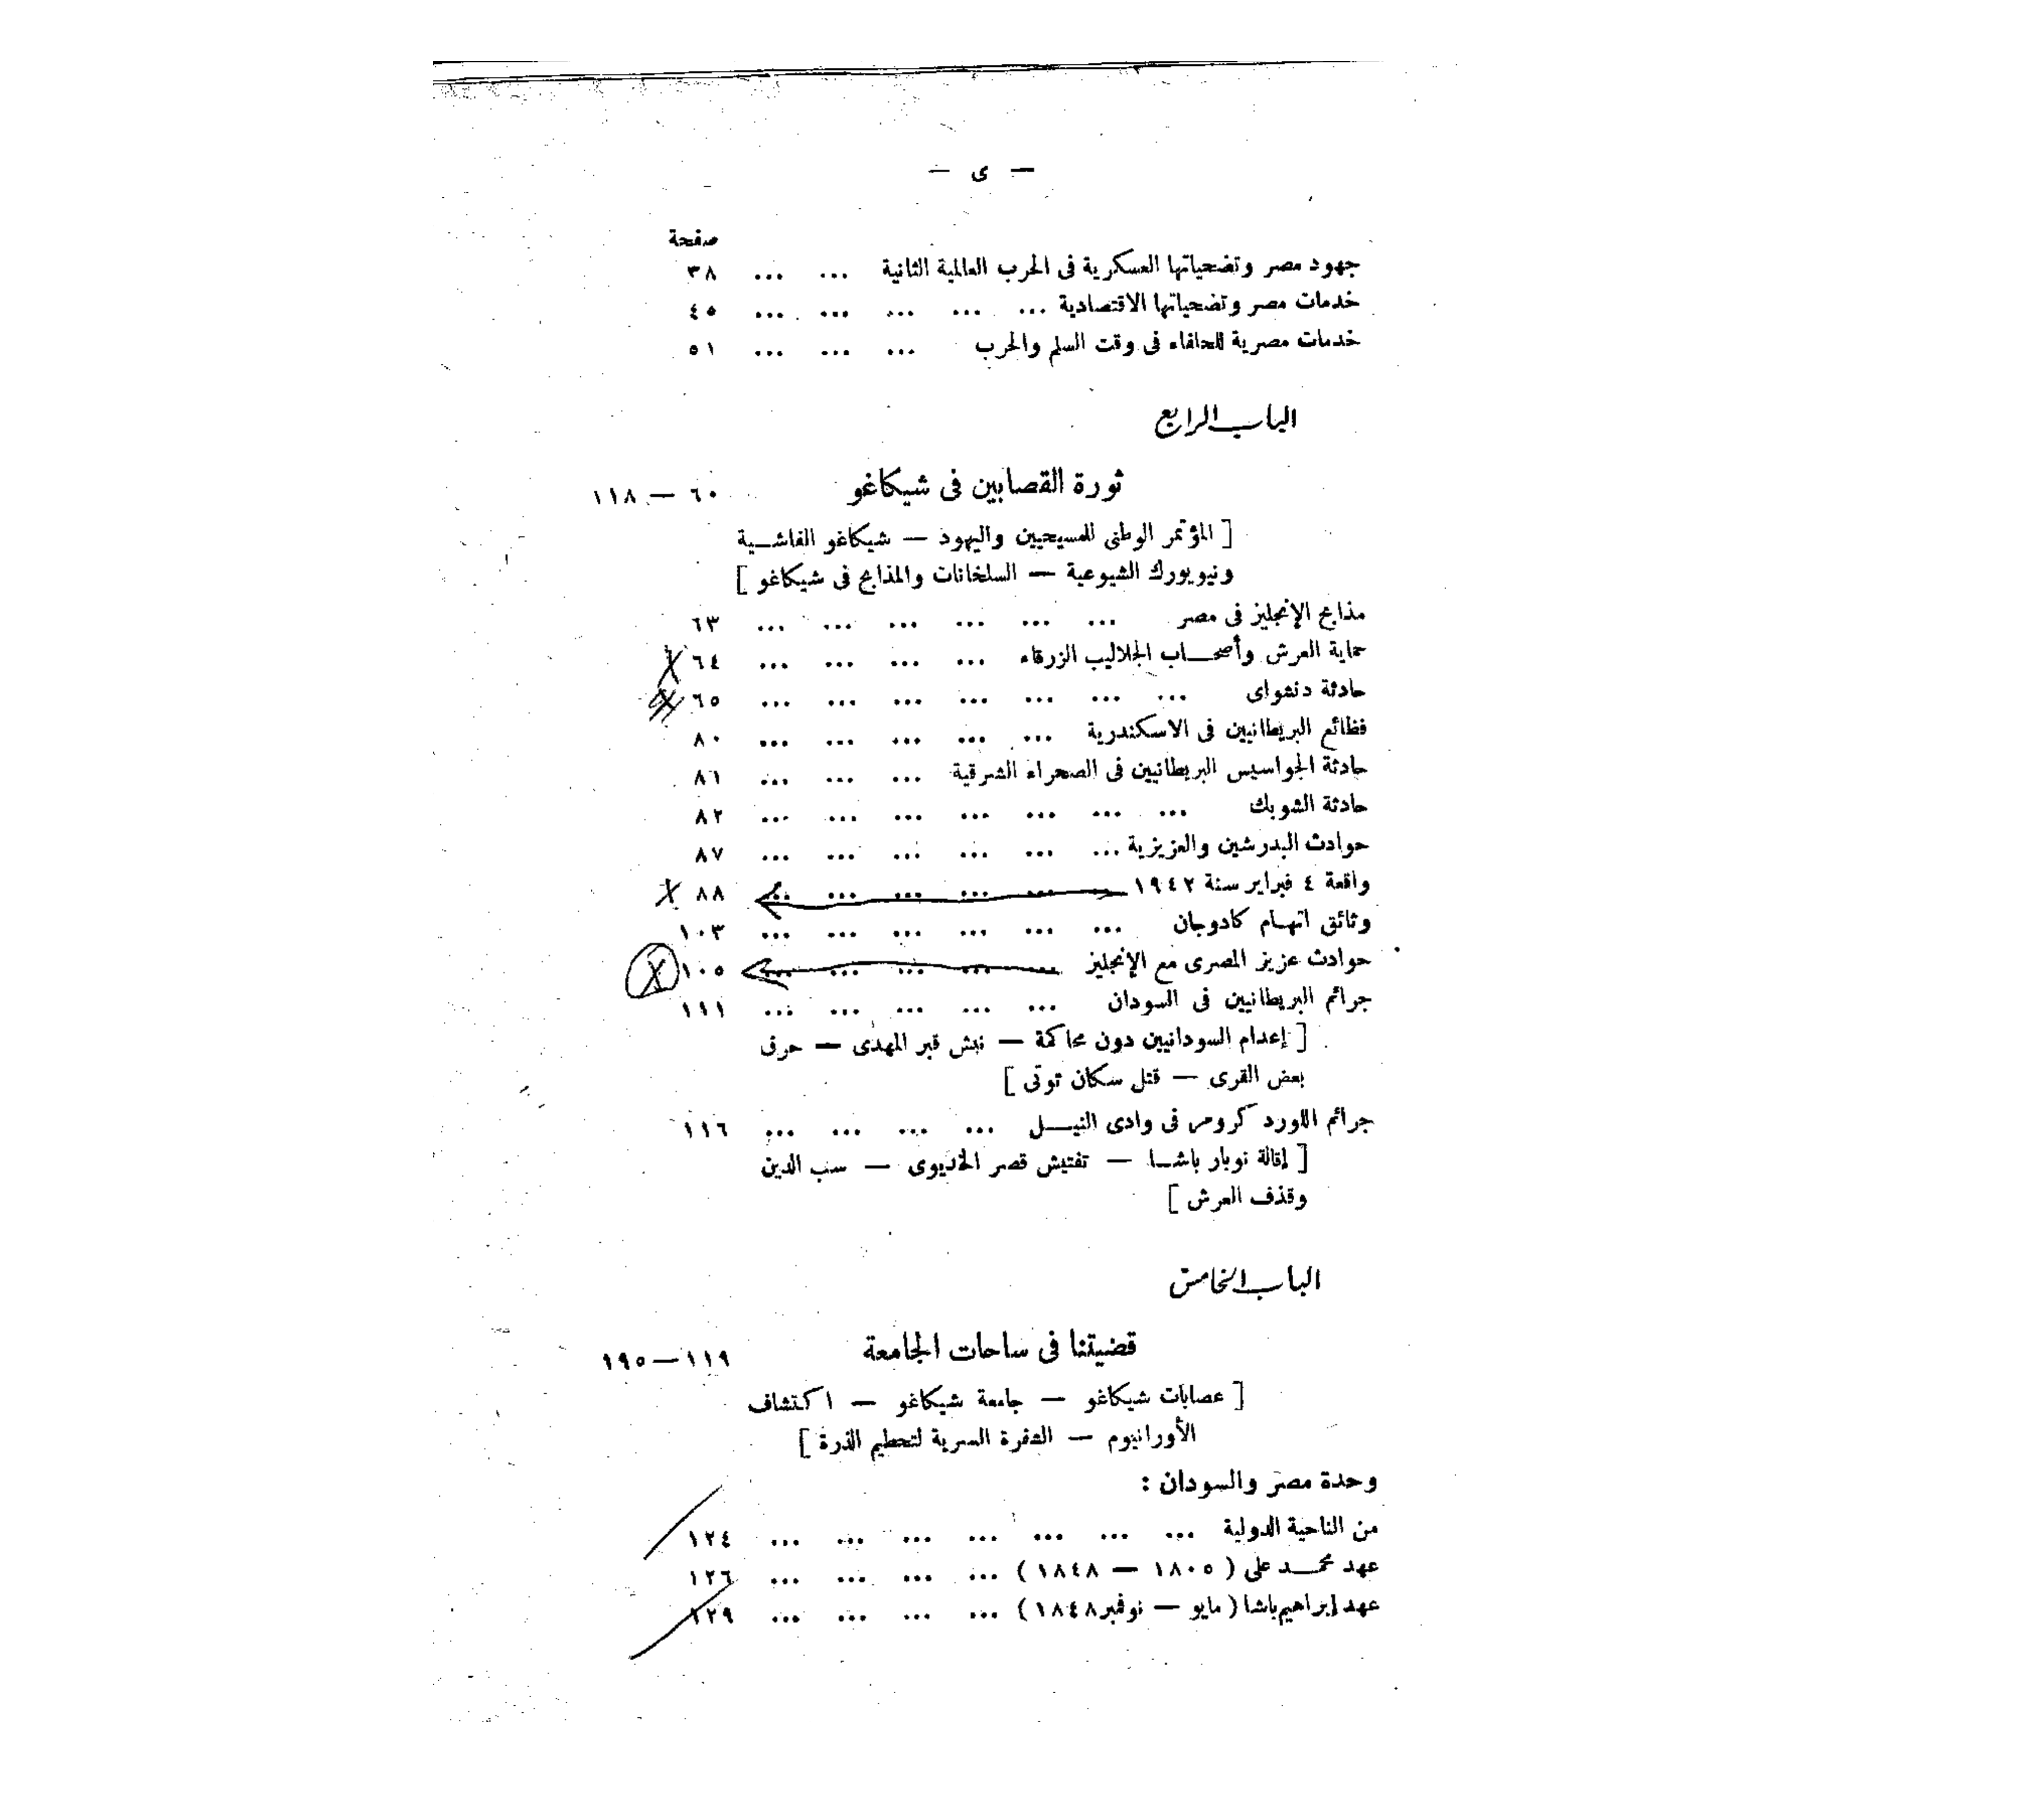 — ى —
صفحة
جهود مصر وتضحياتها العسكرية فى الحرب العالمية الثانية ... ... ٣٨
خدمات مصر وتضحياتها الاقتصادية ... ... ... ... ... ٤٥
خدمات مصرية للحلفاء فى وقت السلم والحرب ... ... ... ٥١
الباب الرابع
ثورة القصابين فى شيكاغو ٦٠ — ١١٨
[ المؤتمر الوطنى للمسيحيين واليهود — شيكاغو الفاشية
ونيويورك الشيوعية — السلخانات والمذابح فى شيكاغو ]
مذابح الإنجليز فى مصر ... ... ... ... ... ... ٦٣
حماية العرش وأصحاب الجلاليب الزرقاء ... ... ... ... ٦٤
حادثة دنشواى ... ... ... ... ... ... ... ٦٥
فظائع البريطانيين فى الاسكندرية ... ... ... ... ... ٨٠
حادثة الجواسيس البريطانيين فى الصحراء الشرقية ... ... ... ٨١
حادثة الشوبك ... ... ... ... ... ... ... ٨٢
حوادث البدرشين والعزيزية ... ... ... ... ... ... ٨٧
واقعة ٤ فبراير سنة ١٩٤٢ ... ... ... ... ... ... ٨٨
وثائق اتهام كادوجان ... ... ... ... ... ... ١٠٣
حوادث عزيز المصرى مع الإنجليز ... ... ... ... ... ١٠٥
جرائم البريطانيين فى السودان ... ... ... ... ... ١١١
[ إعدام السودانيين دون محاكمة — نبش قبر المهدى — حرق
بعض القرى — قتل سكان توتى ]
جرائم اللورد كرومر فى وادى النيل ... ... ... ... ١١٦
[ إقالة نوبار باشا — تفتيش قصر الخديوى — سب الدين
وقذف العرش ]
الباب الخامس
قضيتنا فى ساحات الجامعة ١١٩ — ١٩٥
[ عصابات شيكاغو — جامعة شيكاغو — اكتشاف
الأورانيوم — الشفرة السرية لتحطيم الذرة ]
وحدة مصر والسودان :
من الناحية الدولية ... ... ... ... ... ... ... ١٢٤
عهد محمد على ( ١٨٠٥ — ١٨٤٨ ) ... ... ... ... ١٢٦
عهد إبراهيم باشا ( مايو — نوفمبر ١٨٤٨ ) ... ... ... ... ١٢٩